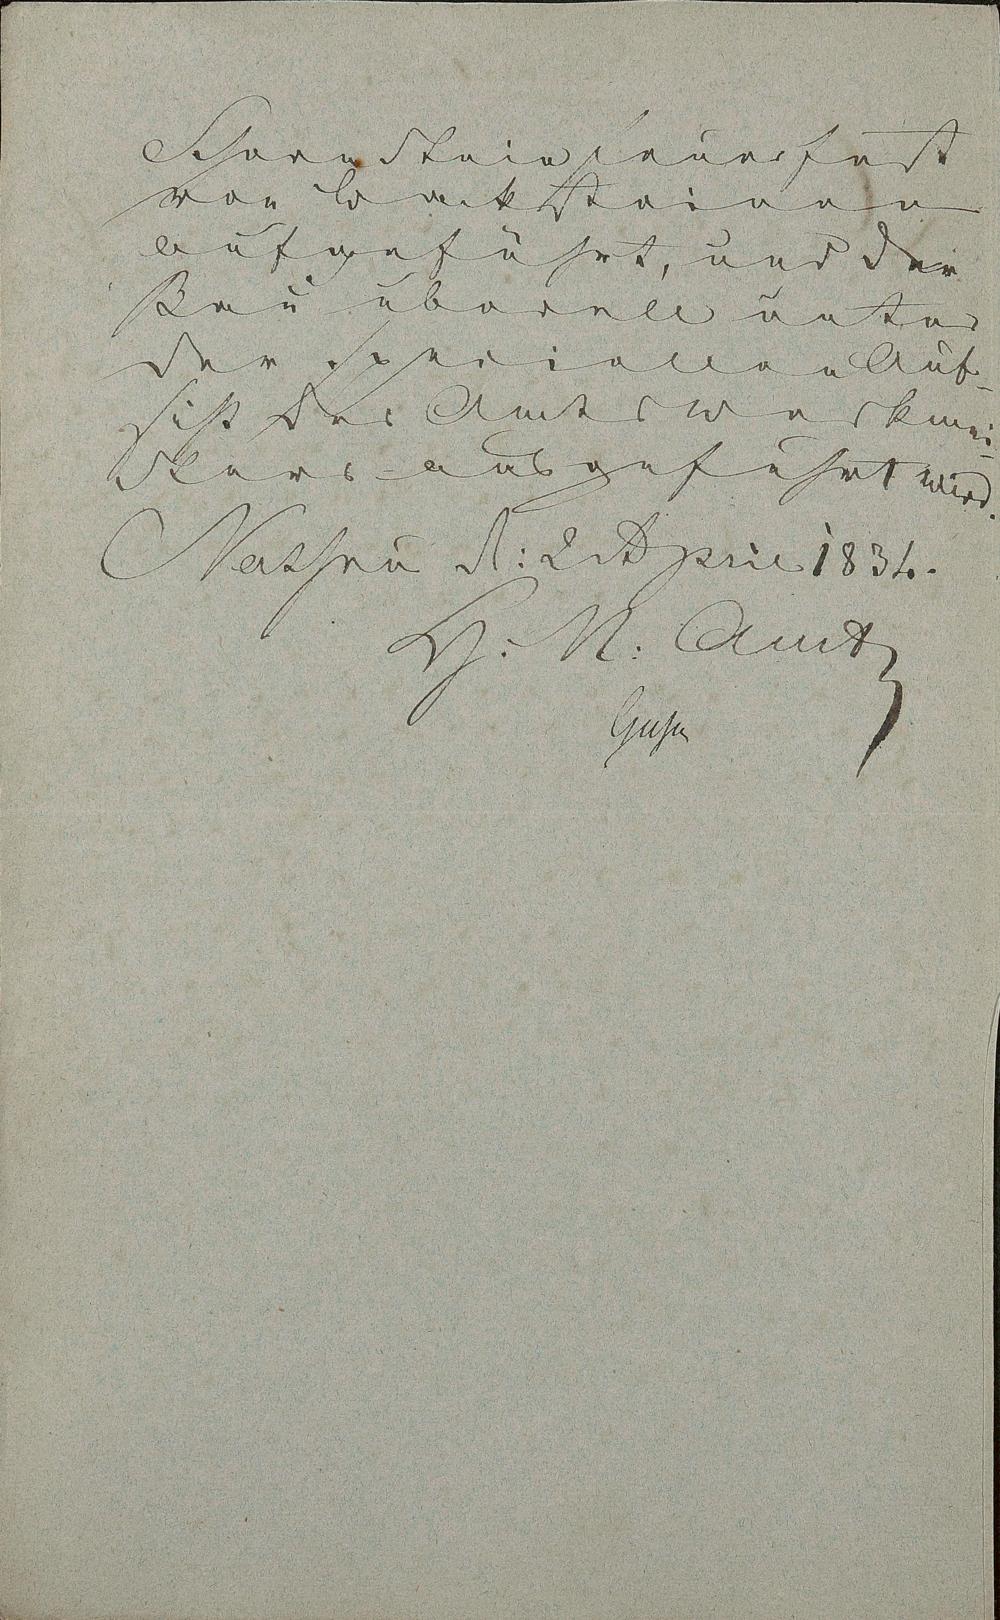 Schornstein feuerfest
von backsteinen
aufgeführt, und der
Bau überall unter
der speciellen Auf-
sicht des Amtswerkmei-
sters ausgeführt wird.
d: 2 April 1834.
H. N. Amt